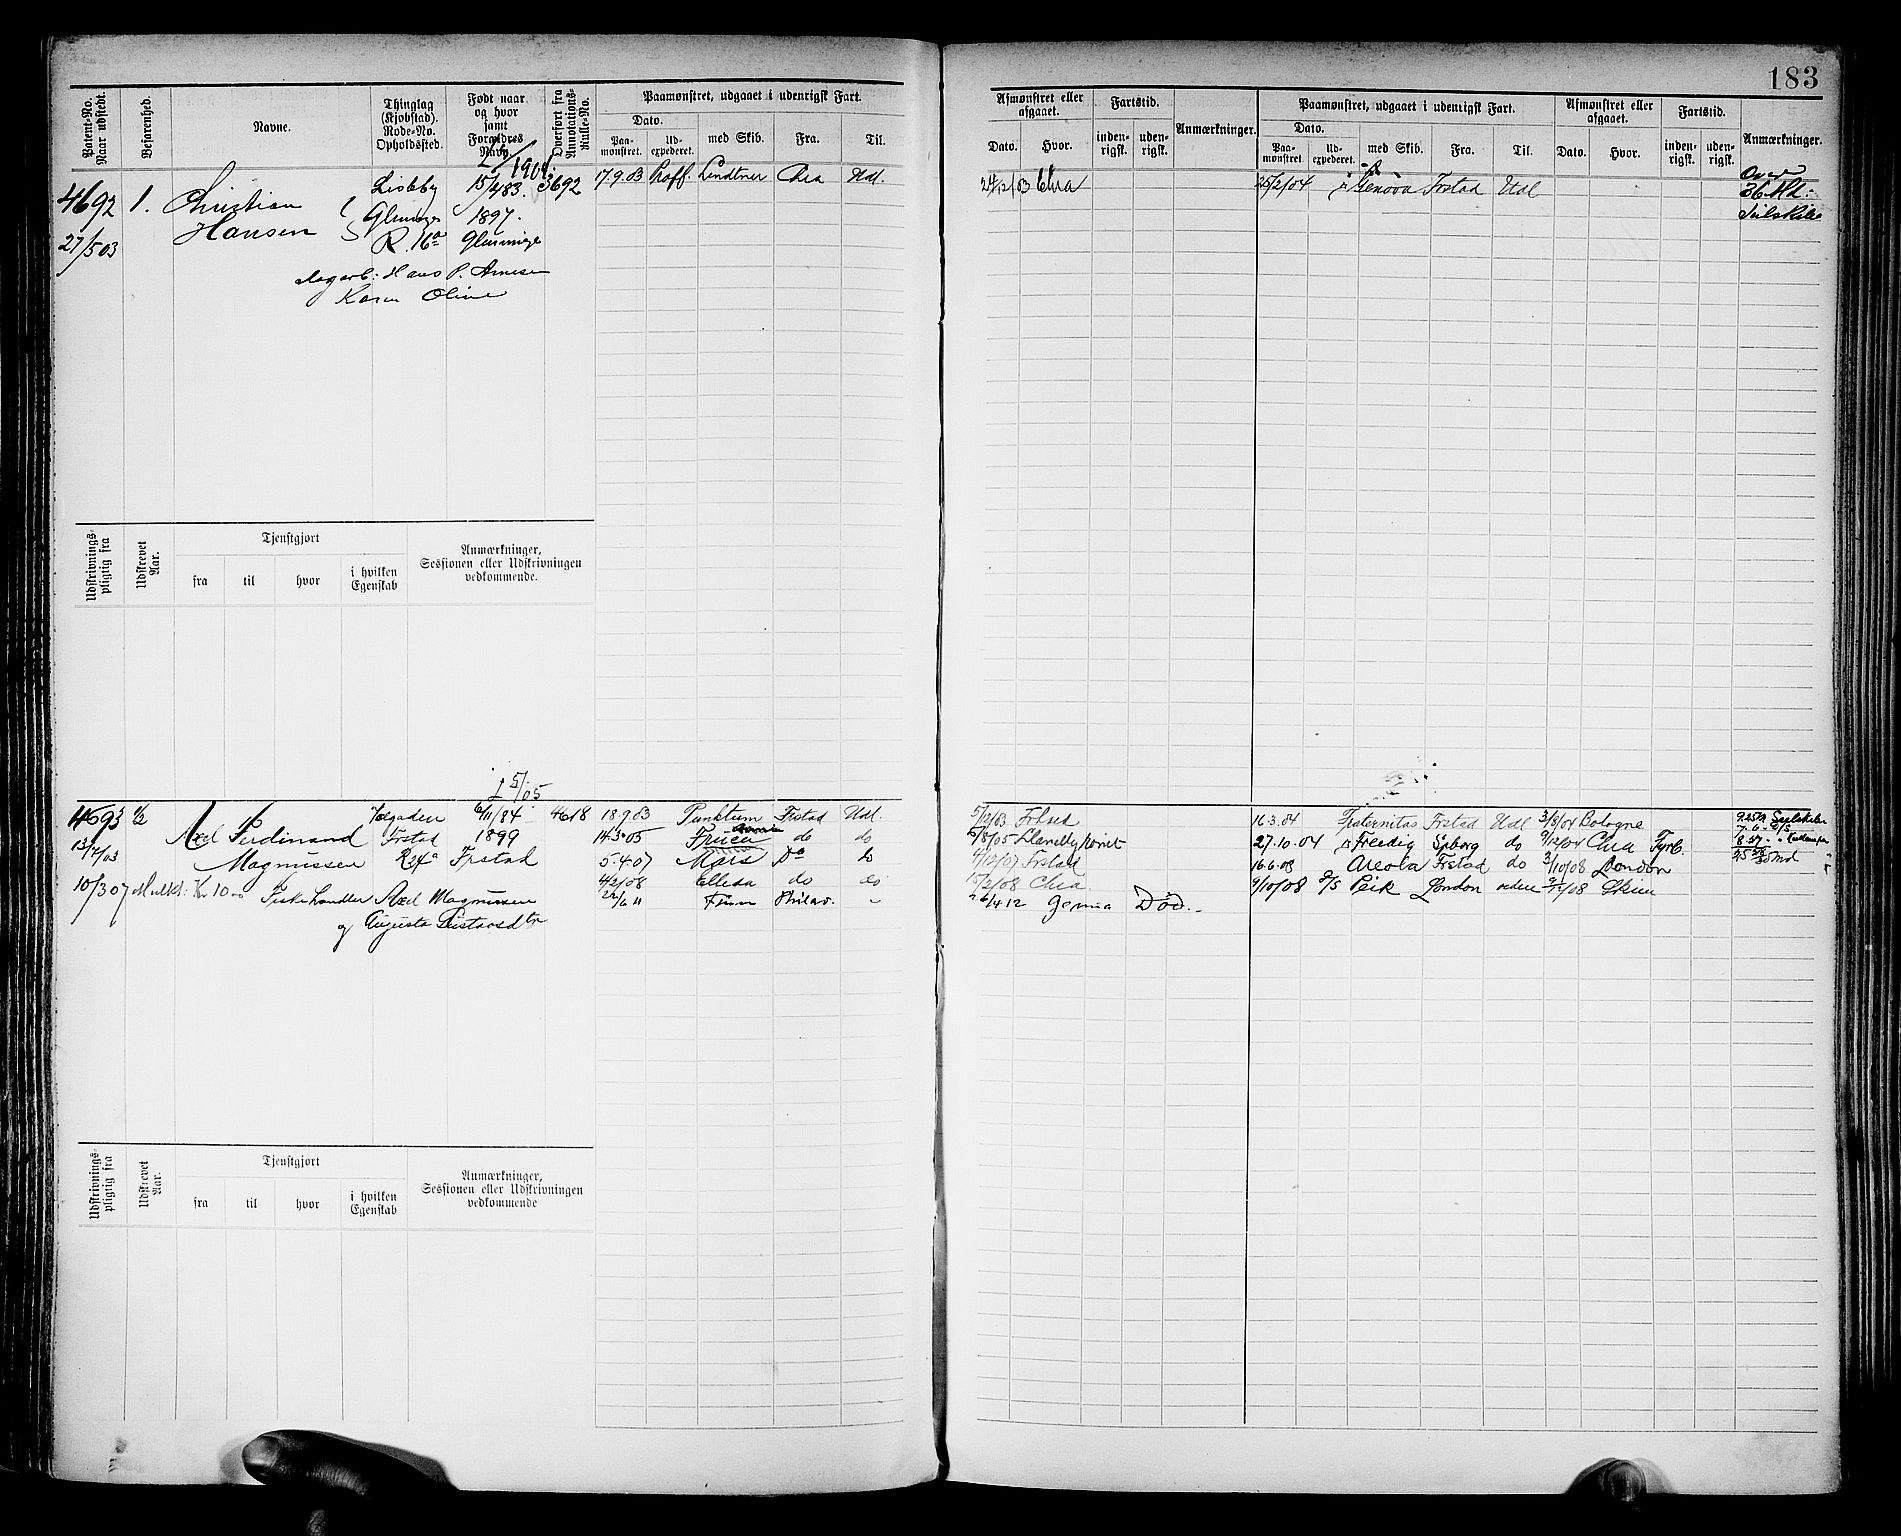 183
Patent-No. Naar udstedt.
Befarenhed.
Navne.
Thinglag (Kjøbstad). Rode-No. Opholdssted.
Født naar og hvor samt Forældres Navn.
Overført fra Annotations-Rulle-No.
Paamønstret, udgaaet i udenrigsk Fart.
Dato.
Paa-mønstret.
Ud-expederet.
med Skib.
Fra.
Til.
Afmønstret eller afgaaet.
Dato.
Hvor.
Fartstid.
inden-rigsk.
uden-rigsk.
Anmærkninger.
Paamønstret, udgaaet i udenrigsk Fart.
Dato.
Paa-mønstret.
Ud-expederet.
med Skib.
Fra.
Til.
Afmønstret eller afgaaet.
Dato.
Hvor.
Fartstid.
inden-rigsk.
uden-rigsk.
Anmærkninger.
4692 1. Christian Hansen
27/5 03
Glemminge
R. 16a Glemminge
15/4 83.
1897.
3692
17.9.03 Lindtner Chra Udl.
24/12/03 Chra
25/2/04 Genova Frstad Udl
Over
36 Md.
Seilskibe
Hans P. Arnesen
Karen Oline
Udskrivnings-pligtig fra
Udskrevet Aar.
Tjenstgjort
fra
til
hvor
i hvilken Egenskab
Anmærkninger, Sessionen eller Udskrivningen vedkommende.
5/05
4693 1/2 Axel Ferdinand Magnussen
13/7/03
Frstad
R 24a Frstad
6/11/84
1899
4618
18.9.03 Punktum Frstad Udl.
14.3.05 do do
5.4.07 Mars Do do
4/2/08 Elleda do do
10/3 07 Kr 10
Fiskehandler Axel Magnussen
og Augusta Gustavsdtr
5/12/03
/8/05 Llanelly
/12/07 Frstad
15/2/08 Chra
26/4 12 Genua Død.
16.3.04 Fraternitas Frstad Udl 3/8/04 Bologne
27.10.04 Freidig Spborg do 9/12/04 Chra Fyrb.
16.6.08 Areola Frstad do 3/10/08 London
9/10/08 D/S Peik London
Seilskibe
Udskrivnings-pligtig fra
Udskrevet Aar.
Tjenstgjort
fra
til
hvor
i hvilken Egenskab
Anmærkninger, Sessionen eller Udskrivningen vedkommende